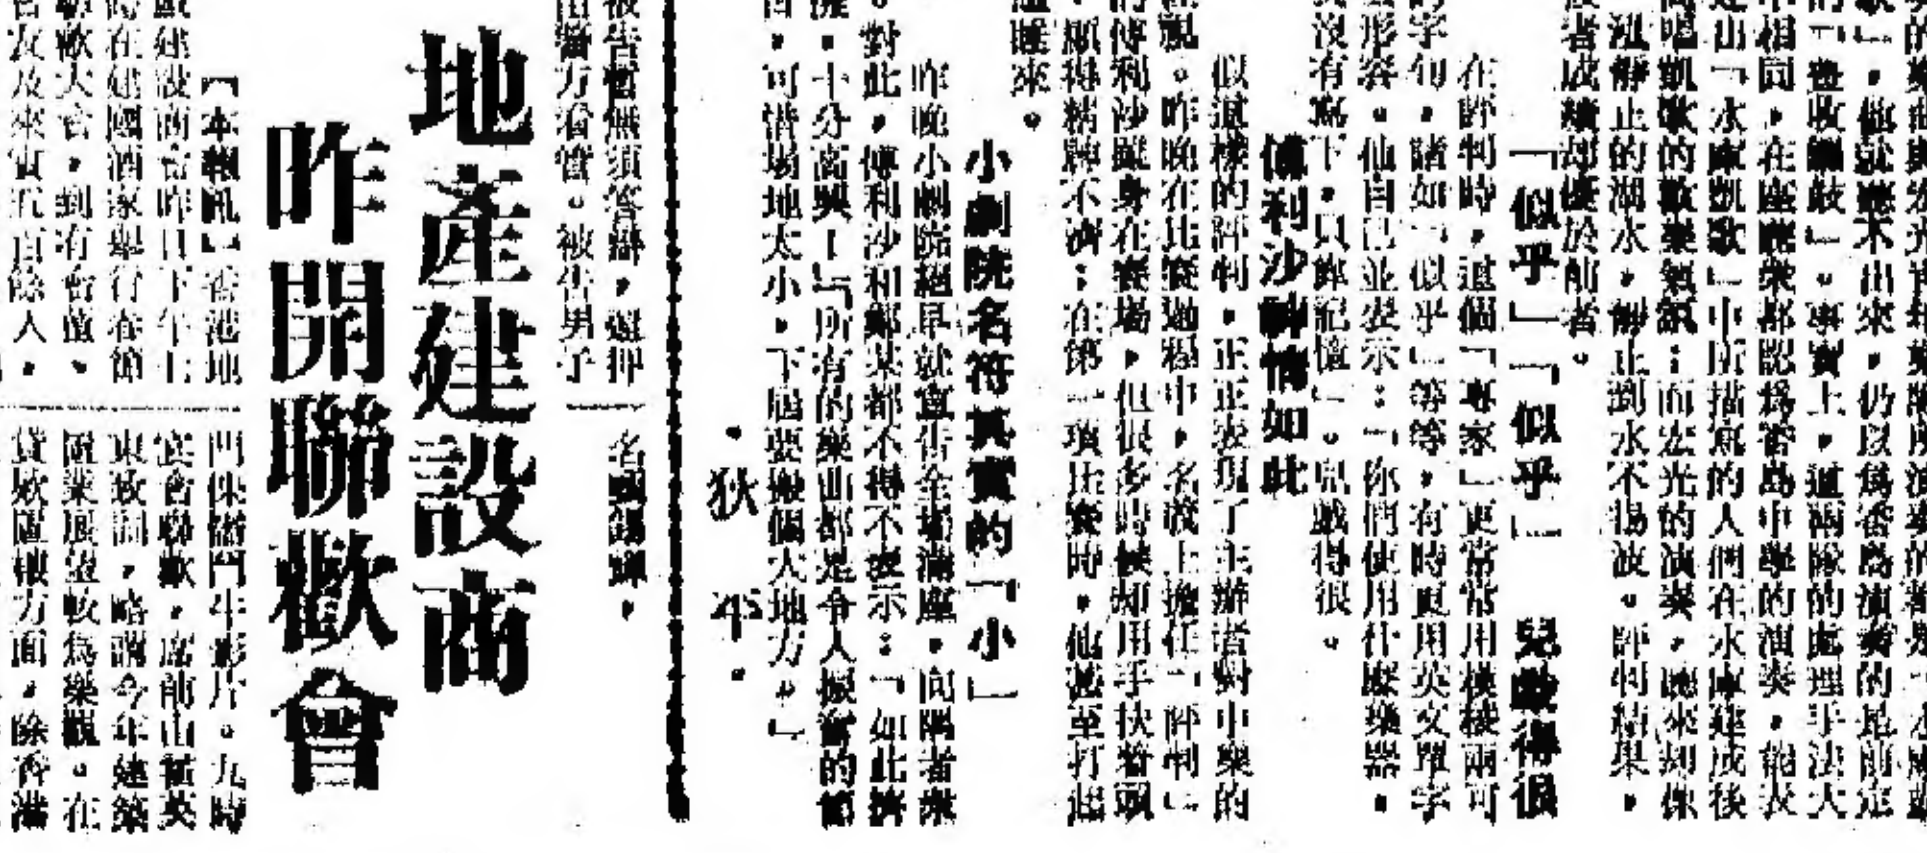 歌」，他就應不出來，仍以爲香島演奏的是前定
的「豐收鑼鼓」。事實上，這兩隊的處理手法大
中相同，在座聽衆都認爲香島中學的演奏，能表
達出「水庫凱歌」中所描寫的人們在水庫建成後
高唱凱歌的歡樂氣氛；而宏光的演奏，聽來却像
泓靜止的湖水，靜止到水不揚波。評判結果，
者成績却優於前者。
「似乎」「似乎」　兒戲得很
在評判時，這個「專家」更常常用模棱兩可
的字句，諸如「似乎」等等，有時更用英文單字
形容。他自己並表示：「你們使用什麼樂器，
沒有寫下，只靠記憶」。兒戲得很。
傅利沙神情如此
似這樣的評判，正正表現了主辦者對中樂的
視。昨晚在比賽過程中，名義上擔任「評判」
的傅利沙雖身在賽場，但很多時候却用手扶着頭
，顯得精神不濟；在第一項比賽時，他甚至打起
瞌睡來。
小劇院名符其實的「小」
昨晚小劇院絕早就宣告全場滿座，向隅者衆
。對此，傅利沙和鄭某都不得不表示：「如此擠
擁，十分高興！」「所有的樂曲都是令人振奮的節
目，可惜場地太小，下屆要搬個大地方。」
・狄　平・
被告暫無須答辯，還押
由警方看管。被告男子
名
地產建設商
昨開聯歡會
【本報訊】香港地
產建設商會昨日下午七
時在建國酒家舉行春節
聯歡大會，到有會董、
會友及來賓五百餘人，
鬥牛影片。九時
宴會聯歡，席前由
東致詞，略謂今年建築
置業展望較爲樂觀。在
貸款區樓方面，除香港